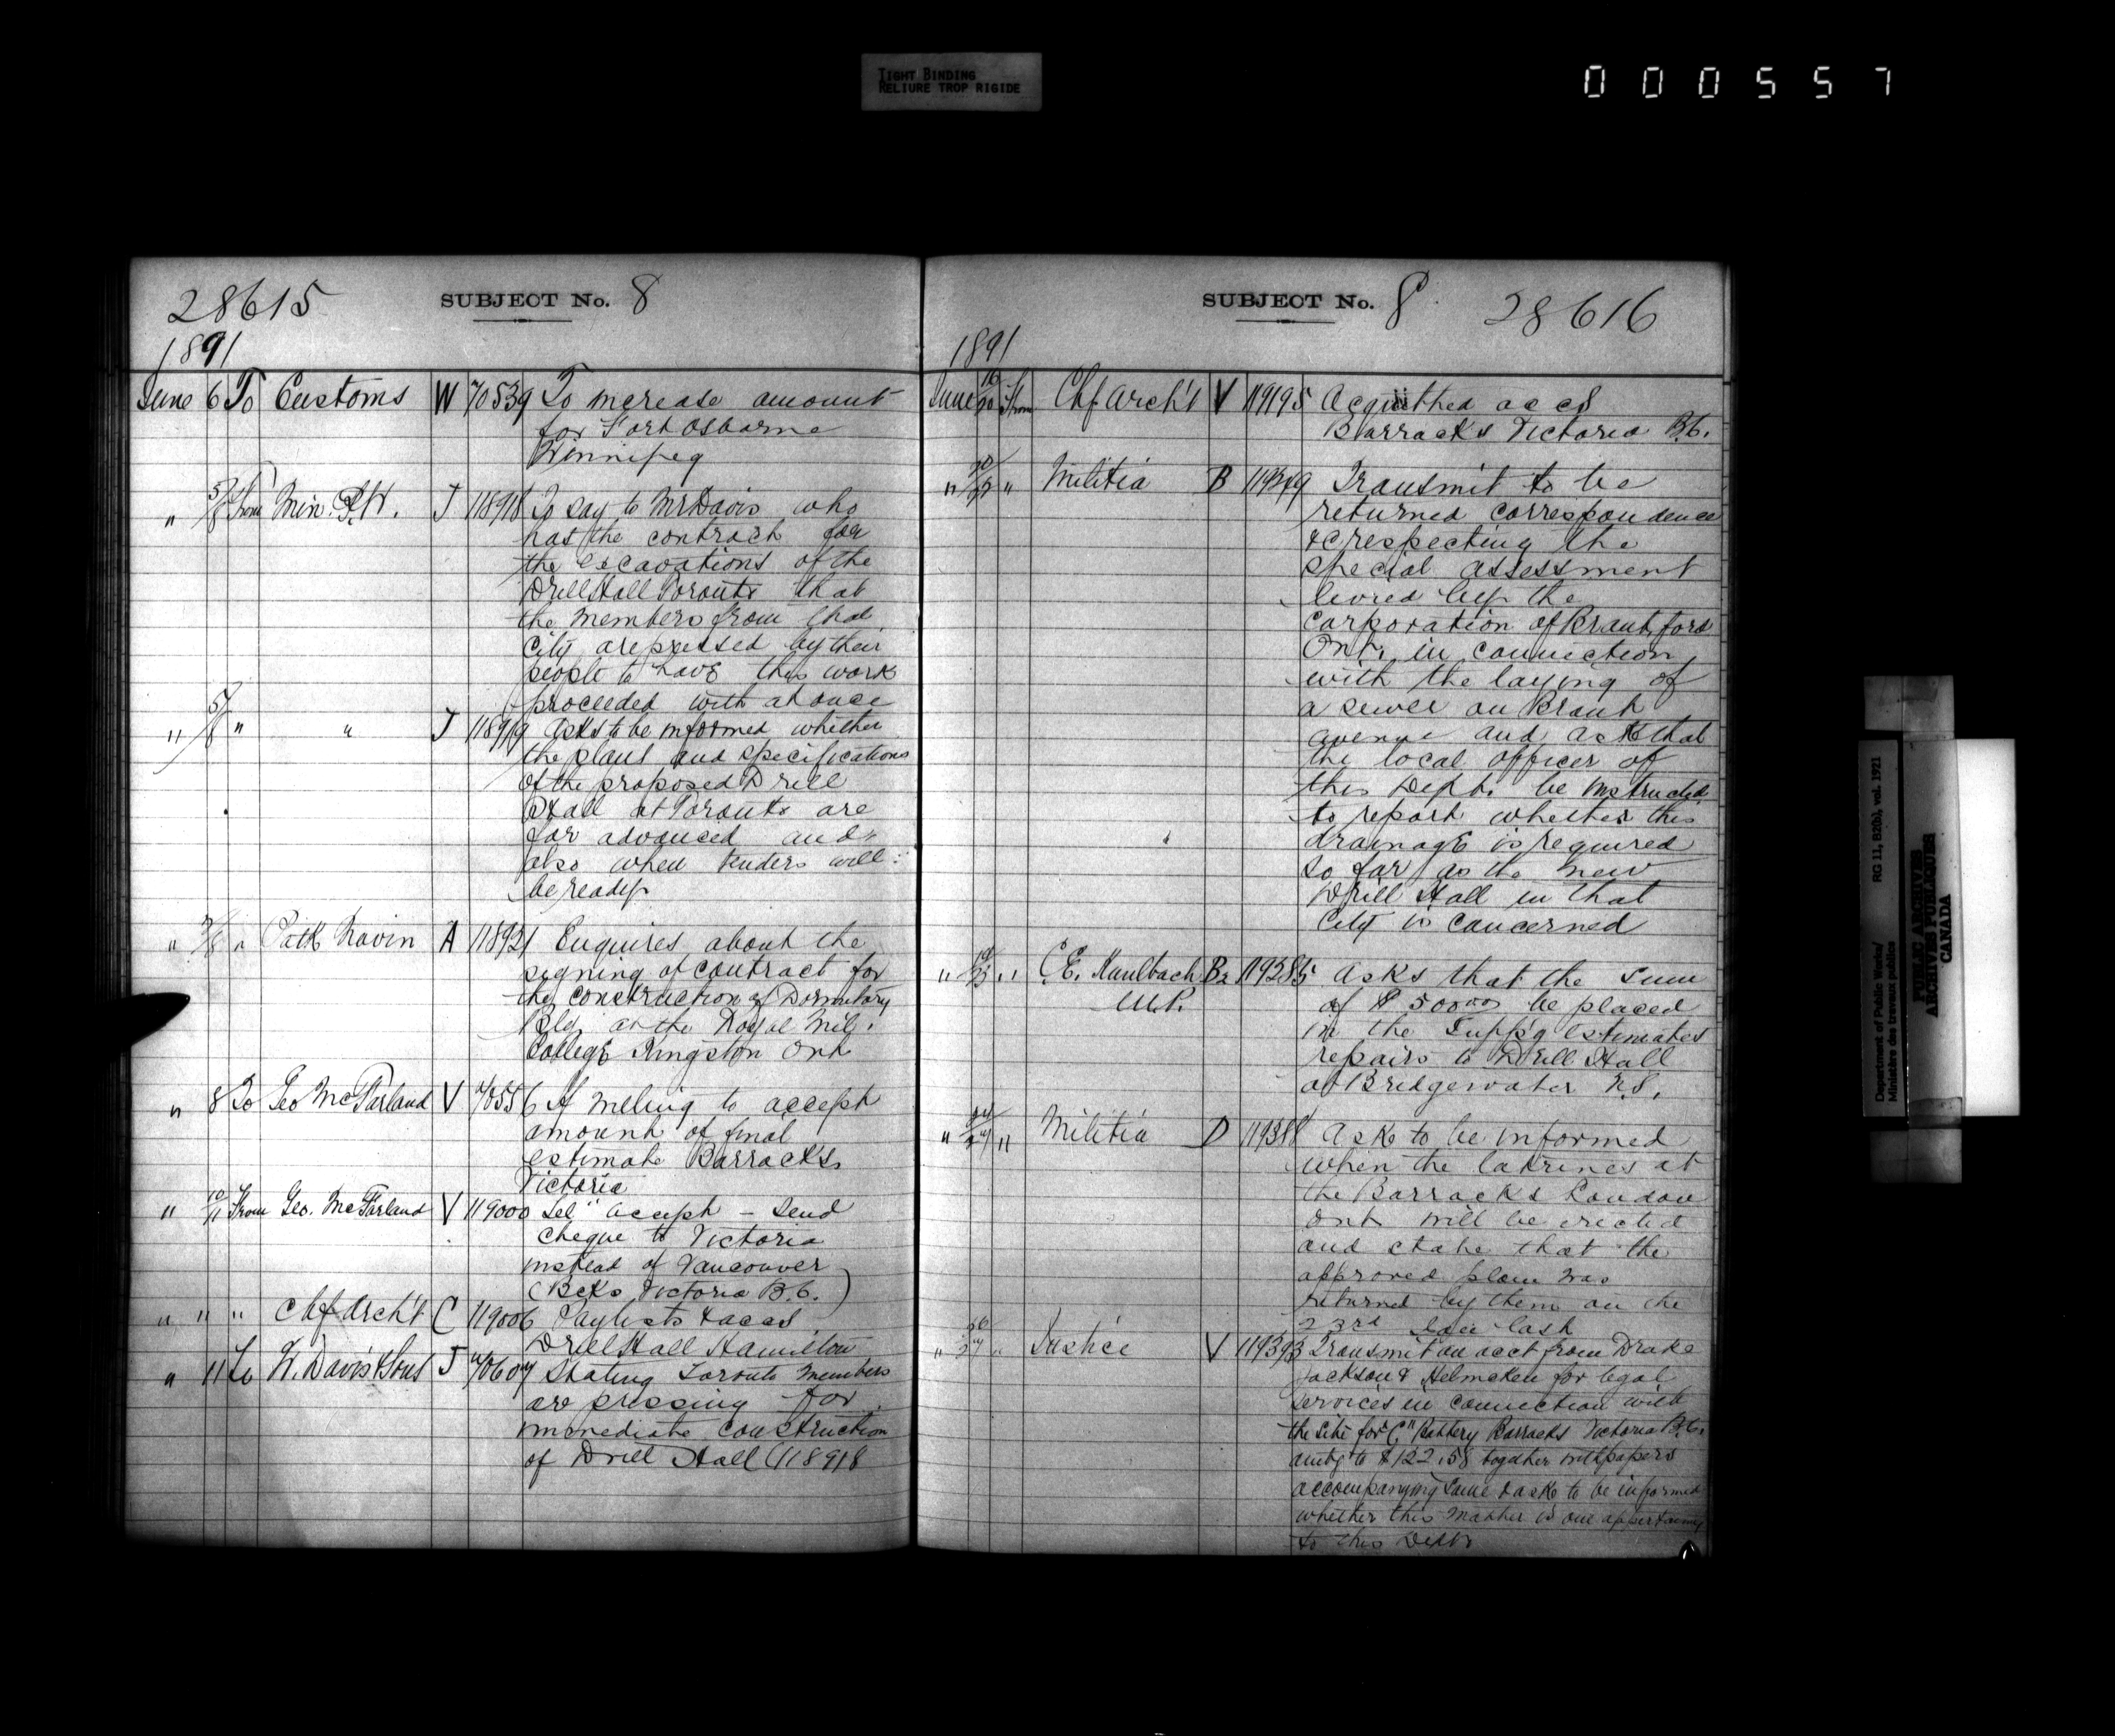 TIGHT BINDING
RELIURE TROP RIGIDE
000557
28615 SUBJECT No. 8
1891
June 6 To Customs W 70539 To increase amount
for Fort Osborne
Winnipeg
" 5/8 From Min. P.W. T 118918 To say to Mr Davis who
has the contract for
the excavations of the
Drill Hall Toronto that
the members from that
City are pressed by their
people to have this work
proceeded with at once
" 5/8 " " T 118919 Asks to be informed whether
the plans and specifications
of the proposed Drill
Hall at Toronto are
far advanced and
also when tenders will
be ready
" 5/8 " Patk Navin A 118921 Enquires about the
signing of contract for
the construction of Dormitory
Bldg. at the Royal Mil.
College Kingston Ont
" 8 To Geo McFarland V 70556 If willing to accept
amount of final
estimate Barracks
Victoria
" 10/11 From Geo. McFarland V 119000 Tel" accept – Send
cheque to Victoria
instead of Vancouver
(Bcks Victoria B.C.)
" " " Chf Arch't C 119006 Paylists & accs
Drill Hall Hamilton
" 11 To W. Davis & Sons T 70607 Stating Toronto members
are pressing for
immediate construction
of Drill Hall (118918
SUBJECT No. 8 28616
1891
June 16/20 From Chf Arch't V 119195 accs
Barracks Victoria B.C.
" " Militia B 119349 Transmit to be
returned correspondence
&c respecting the
special assessment
levied by the
Corporation of Brantford
Ont. in connection
with the laying of
a sewer on Brant
avenue and ask that
the local officer of
this Dept. be instructed
to report whether this
drainage is required
so far as the new
Drill Hall in that
City is concerned
" 19/23 " C.E. Kaulbach B2 119385 Asks that the sum
M.P. of $500.00 be placed
in the Supp'g Estimates
repairs to Drill Hall
at Bridgewater N.S.
" 24/24 " Militia D 119388 Ask to be informed
when the latrines at
the Barracks London
Ont will be erected
and state that the
approved plan was
returned by them on the
23rd last
" 26/27 " Justice V 119393 Transmit an acct from Drake
Jackson & Helmcken for legal
services in connection with
the site for "C" Battery Barracks Victoria B.C.
amtg to $122.58 together with papers
accompanying same & ask to be informed
whether this matter is one appertaining
to this Dept
Department of Public Works/
Ministère des travaux publics
RG 11, B2(b), vol. 1921
PUBLIC ARCHIVES
ARCHIVES PUBLIQUES
CANADA